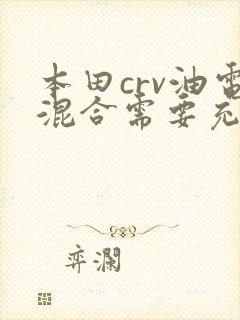 本田crv油电
混合需要充
弈澜